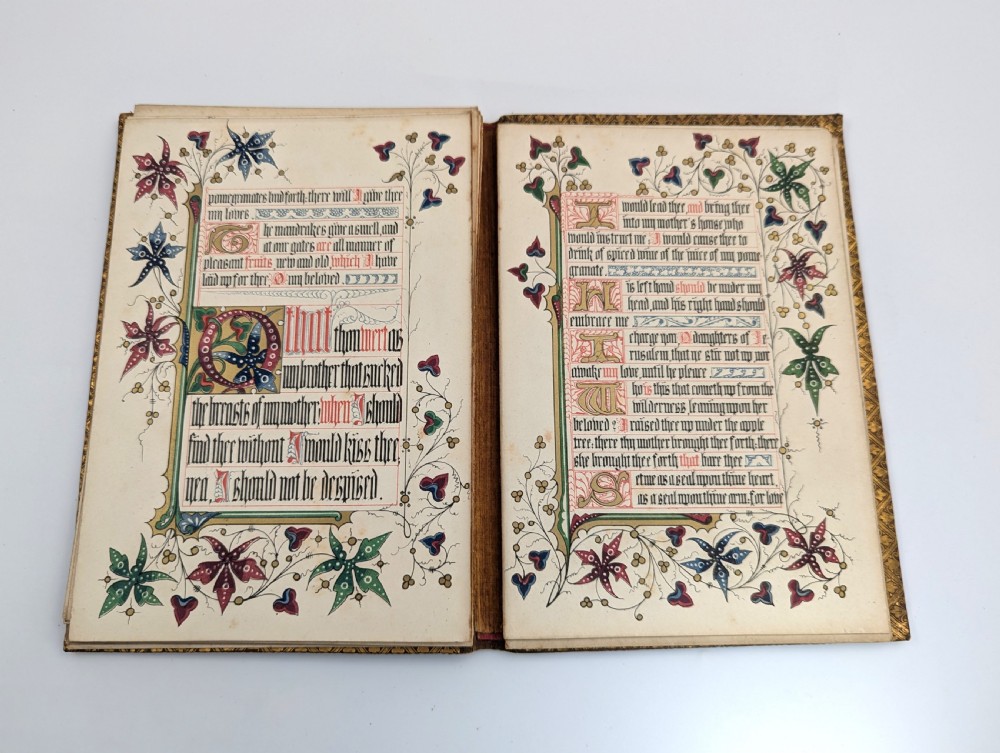 pomegranates bud forth: there will I give thee
my loves
The mandrakes give a smell, and
at our gates are all manner of
pleasant fruits new and old, which I have
laid up for thee, O my beloved.
O that
thou wert as
my brother that sucked
the breasts of my mother: when I should
find thee without I would kiss thee,
yea, I should not be despised.
I would lead thee, and bring thee
into my mother's house, who
would instruct me; I would cause thee to
drink of spiced wine of the juice of my pome
granate.
His left hand should be under my
head, and his right hand should
embrace me
I charge you O daughters of Je
rusalem, that ye stir not up, nor
awake my love, until he please
Who is this that cometh up from the
wilderness leaning upon her
beloved? I raised thee up under the apple
tree: there thy mother brought thee forth: there
she brought thee forth that bare thee
Set me as a seal upon thine heart,
as a seal upon thine arm. for love